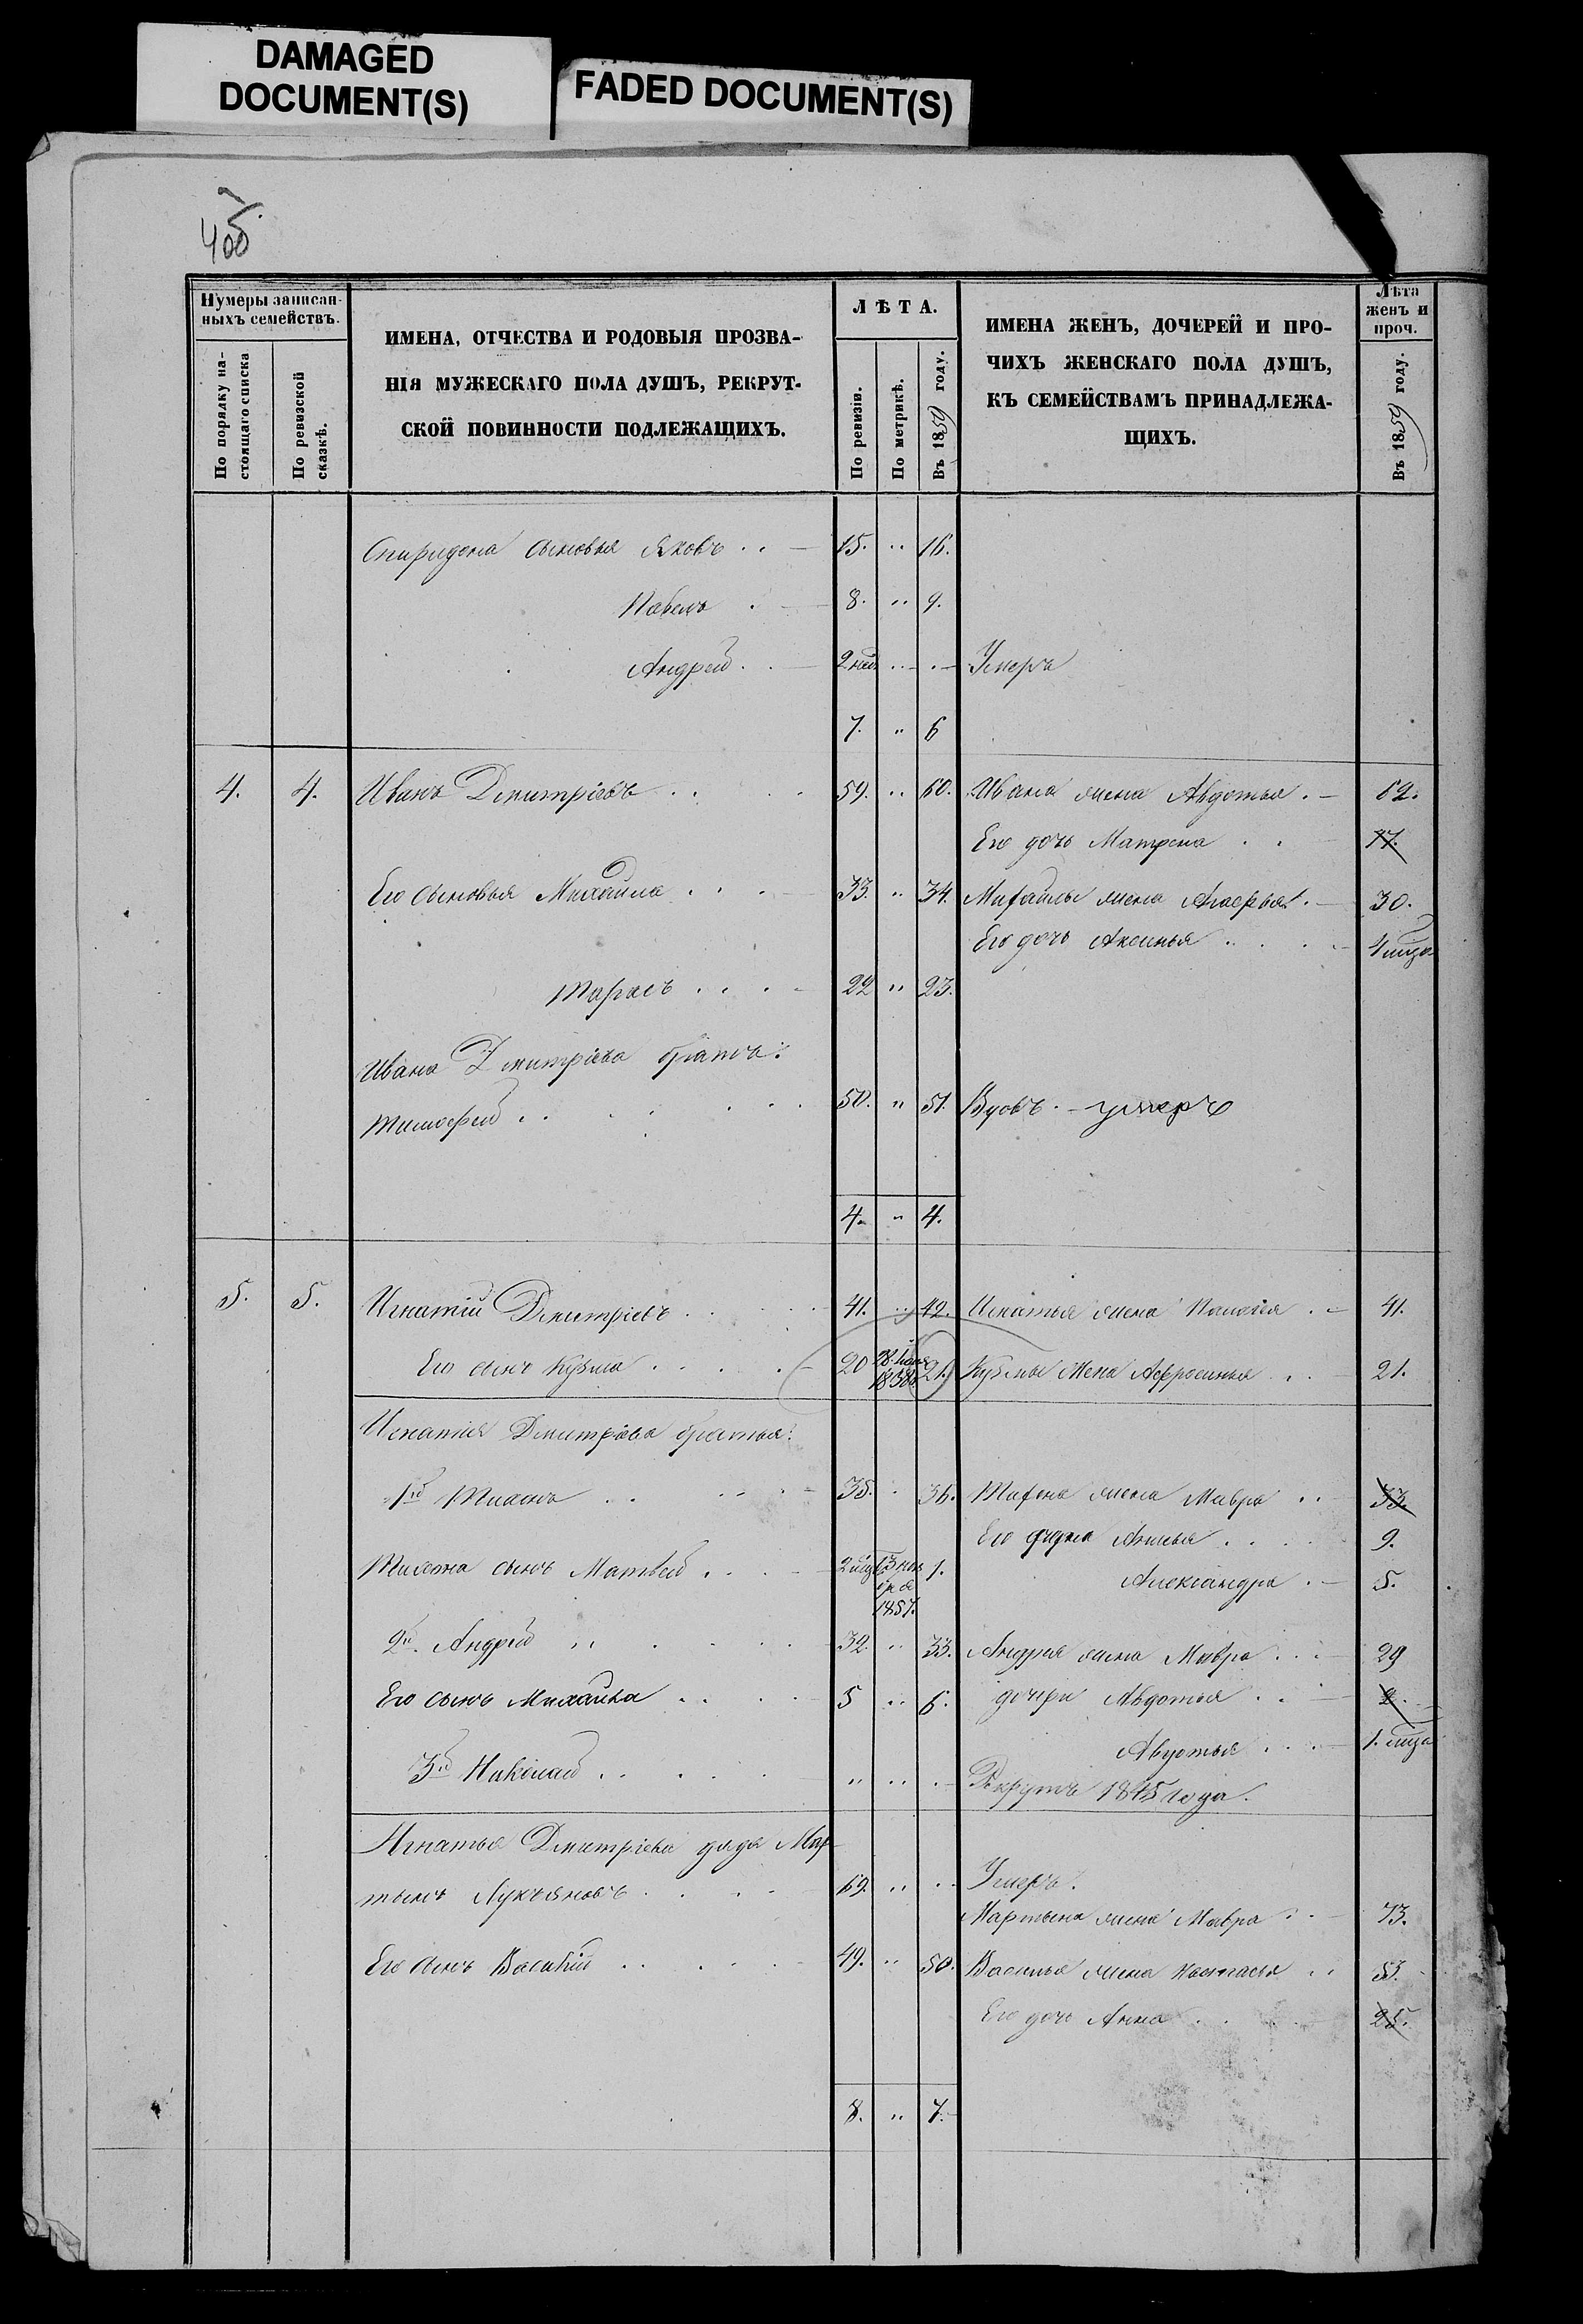 DAMAGED
DOCUMENT(S)
FADED DOCUMENT(S)
4 об.
Нумеры записан-
ныхъ семействъ.
По порядку на-
стоящаго списка
По ревизской
сказкѣ.
ИМЕНА, ОТЧЕСТВА И РОДОВЫЯ ПРОЗВА-
НІЯ МУЖЕСКАГО ПОЛА ДУШЪ, РЕКРУТ-
СКОЙ ПОВИННОСТИ ПОДЛЕЖАЩИХЪ.
ЛѢТА.
По ревизіи.
По метрикѣ.
Въ 1859 году.
ИМЕНА ЖЕНЪ, ДОЧЕРЕЙ И ПРО-
ЧИХЪ ЖЕНСКАГО ПОЛА ДУШЪ,
КЪ СЕМЕЙСТВАМЪ ПРИНАДЛЕЖА-
ЩИХЪ.
Лѣта
женъ и
проч.
Въ 1859 году.
Спиридона сыновья Яковъ . . 15. " 16.
Павелъ . 8. " 9.
Андрей . . 2 нед. " . Умеръ
7. " 6
4. 4. Иванъ Дмитріевъ . . 59. " 60. Ивана жена Авдотья . 62.
Его дочь Матрена . . 17.
Его сыновья Михайла . . . 33. " 34. Михайлы жена . 30.
Его дочь Аксинья . . . 4 мца
Тарасъ . . . . 22 " 23.
Ивана Дмитріева братъ:
Тимофей . . 50. " 51. Вдовъ. - умеръ
4. " 4.
5. 5. Игнатій Дмитріевъ . . . 41. " 42. Игнатья жена Пелагея . . 41.
Его сынъ Кузма . . . . 20 28. 1838 21. Кузмы жена Афросинья . . 21.
Игнатія Дмитріева братья:
1й Тихонъ . . 35. . 36. Тихона жена Мавра . . 33.
Его дочери . . . 9.
Тихона сынъ Матвей . . . 2 мца 13 ноября 1857. 1. Александра . 5.
2й. Андрей " . . . 32. " 33. Андрея жена Мавра . . . 29
Его сынъ Михайла . . . 5 " 6. дочери Авдотья . . . 2.
Авдотья . . . 1. мца
3й Николай . . . . " " . Рекрутъ 1845 года.
Игнатья Дмитріева дядя Мар-
тынъ Лукьяновъ . . . . 69. " . . Умеръ.
Мартына жена Мавра . . 73.
Его сынъ Василій . . . . 49. " 50. Василья жена Настасья . . 53.
Его дочь Анна . . 25.
8. " 7.